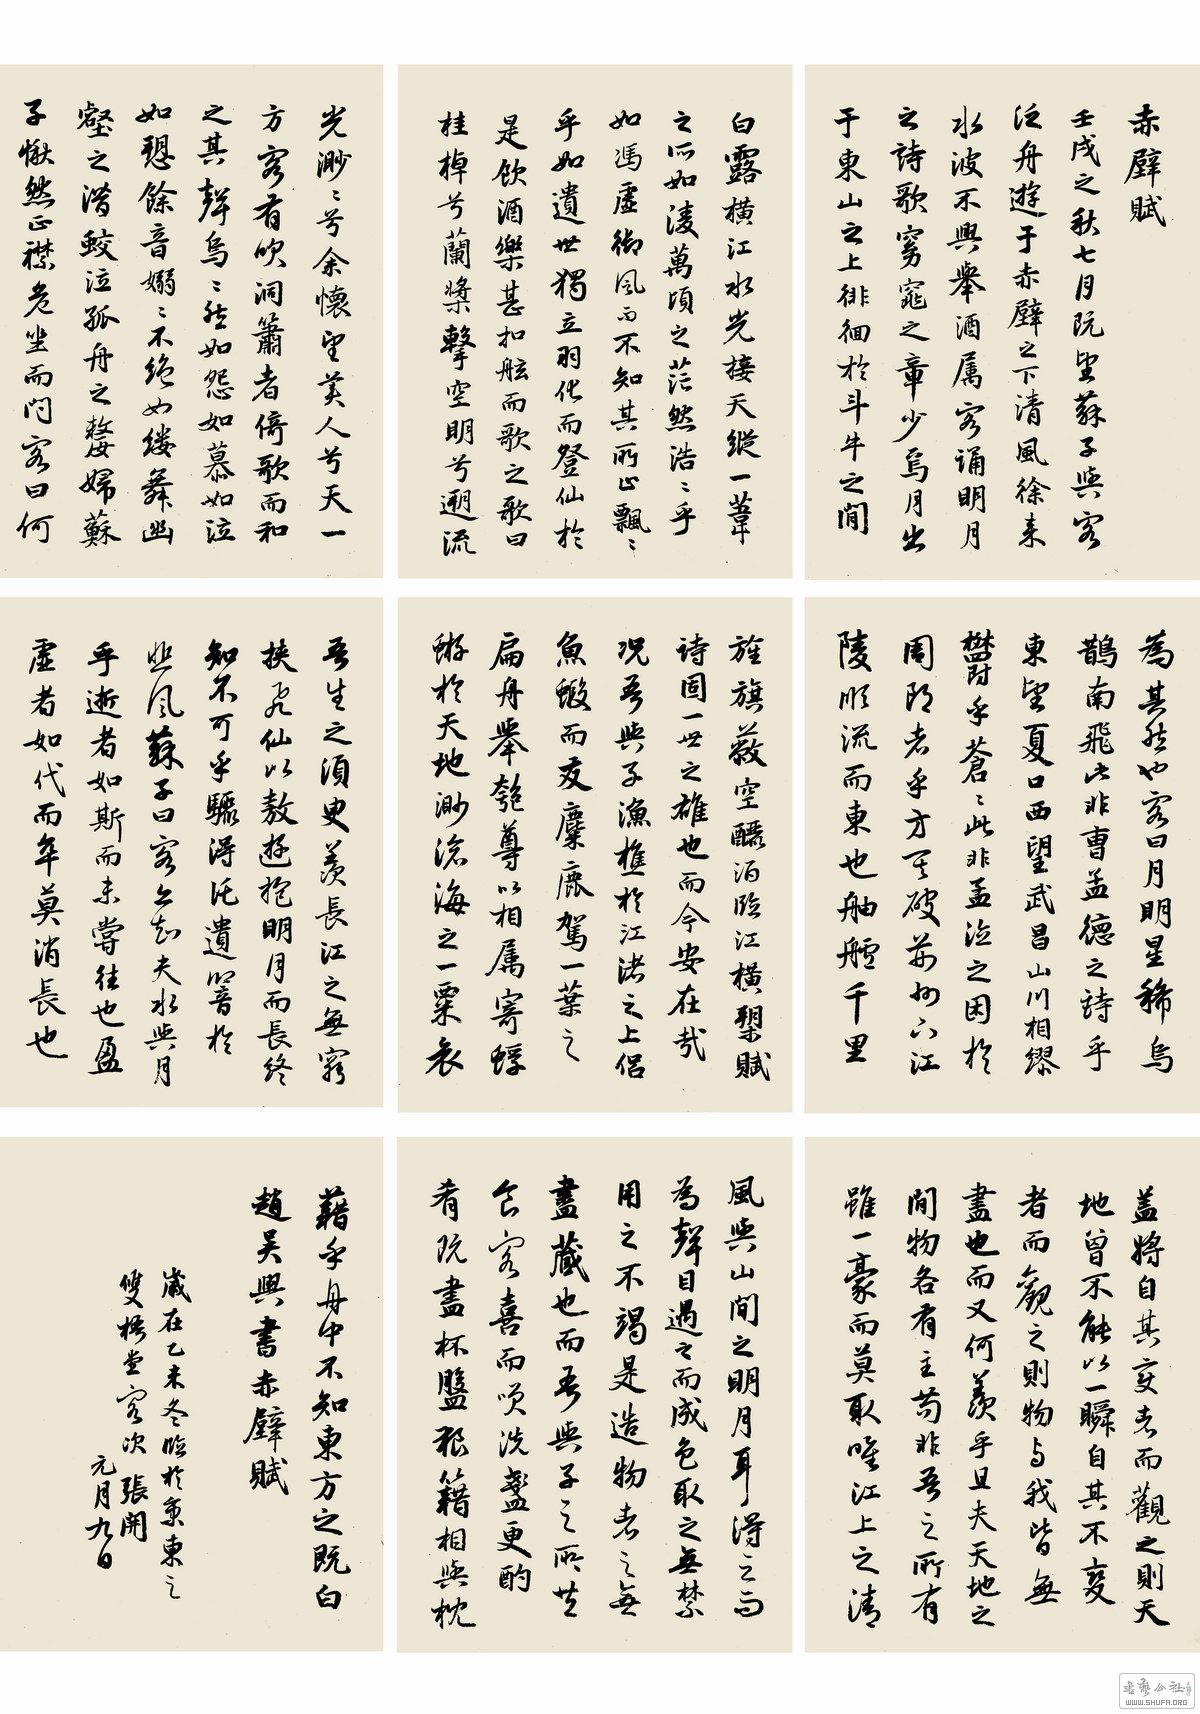 赤壁賦
壬戌之秋七月既望蘇子與客
泛舟遊于赤壁之下清風徐来
水波不興舉酒属客誦明月
之詩歌窈窕之章少焉月出
于東山之上徘徊於斗牛之間
白露横江水光接天縱一葦
之所如凌萬頃之茫然浩〻乎
如馮虚御風而不知其所止飄〻
乎如遺世獨立羽化而登仙於
是飲酒樂甚扣舷而歌之歌曰
桂棹兮蘭槳擊空明兮遡流
光渺〻兮余懷望美人兮天一
方客有吹洞簫者倚歌而和
之其聲烏〻然如怨如慕如泣
如愬餘音嫋〻不絶如縷舞幽
壑之潜蛟泣孤舟之嫠婦蘇
子愀然正襟危坐而問客曰何
為其然也客曰月明星稀烏
鵲南飛此非曹孟德之詩乎
東望夏口西望武昌山川相繆
欝乎蒼〻此非孟德之困於
周郎者乎方其破荊州下江
陵順流而東也舳艫千里
旌旗蔽空釃酒臨江横槊賦
詩固一世之雄也而今安在哉
况吾與子漁樵於江渚之上侶
魚蝦而友麋鹿駕一葉之
扁舟舉匏尊以相属寄蜉
蝣於天地渺滄海之一粟哀
吾生之須臾羨長江之無窮
挟飛仙以敖遊抱明月而長終
知不可乎驟得託遺響於
悲風蘇子曰客亦知夫水與月
乎逝者如斯而未嘗往也盈
虚者如代而卒莫消長也
盖將自其变者而觀之則天
地曾不能以一瞬自其不變
者而觀之則物与我皆無
盡也而又何羨乎且夫天地之
間物各有主苟非吾之所有
雖一豪而莫取唯江上之清
風與山間之明月耳得之而
為聲目遇之而成色取之無禁
用之不竭是造物者之無
盡蔵也而吾與子之所共
食客喜而笑洗盞更酌
肴既盡杯盤狼籍相與枕
藉乎舟中不知東方之既白
趙吴興書赤壁賦
歲在乙未冬臨於京東之
雙梧堂客次張開
元月九日
WWW.SHUFA.ORG